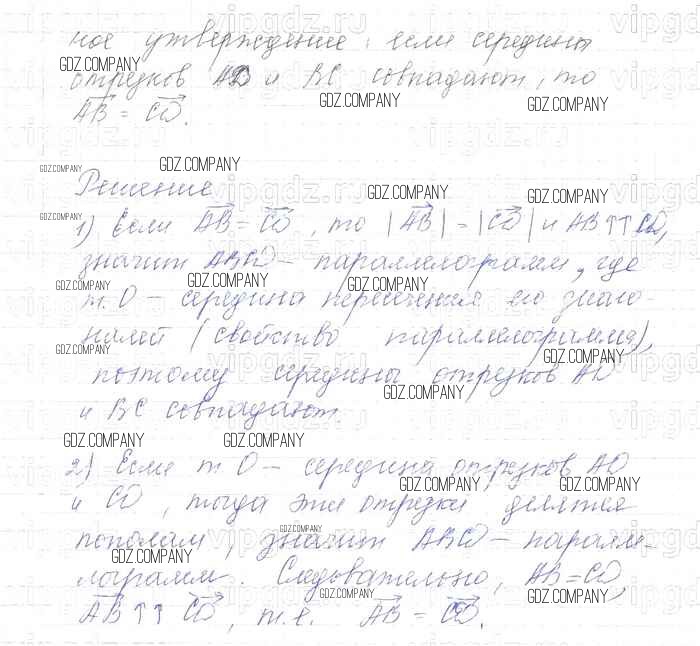 ное утверждение: если середины
отрезков AD и BC совпадают, то
AB = CD.
Решение
1) Если AB = CD, то |AB| = |CD| и AB↑↑CD,
значит ABCD – параллелограмм, где
т. O – середина пересечения его диаго-
налей (свойство параллелограмма),
поэтому середины отрезков AD
и BC совпадают.
2) Если т. O – середина отрезков AD
и CD, тогда эти отрезки делятся
пополам, значит ABCD – паралле-
лограмм. Следовательно, AB = CD,
AB ↑↑ CD, т.е. AB = CD.